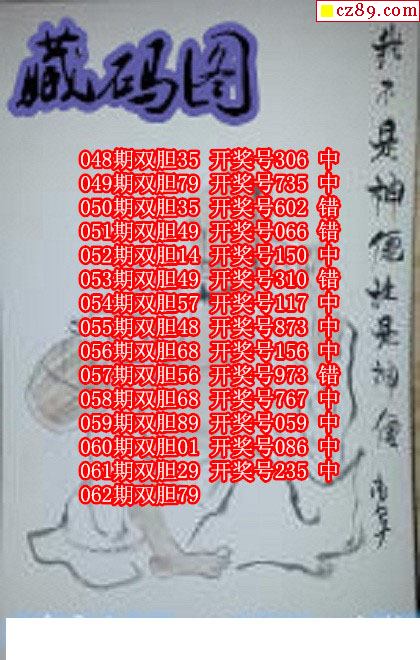 cz89.com
藏码图
048期双胆35 开奖号306 中
049期双胆79 开奖号735 中
050期双胆35 开奖号602 错
051期双胆49 开奖号066 错
052期双胆14 开奖号150 中
053期双胆49 开奖号310 错
054期双胆57 开奖号117 中
055期双胆48 开奖号873 中
056期双胆68 开奖号156 中
057期双胆56 开奖号973 错
058期双胆68 开奖号767 中
059期双胆89 开奖号059 中
060期双胆01 开奖号086 中
061期双胆29 开奖号235 中
062期双胆79
我不是神僊就是神僊